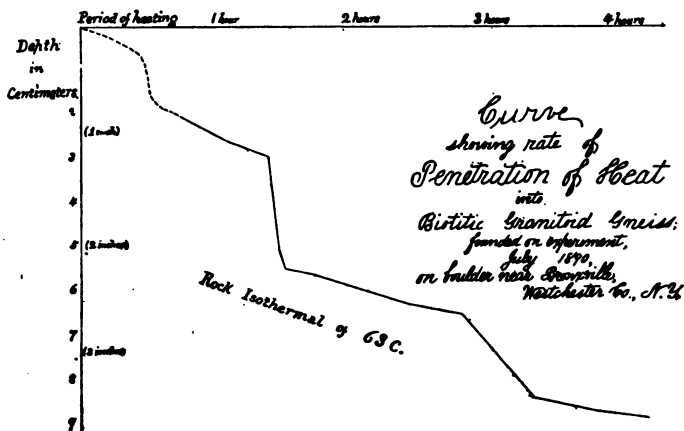 Period of heating 1 hour 2 hours 3 hours 4 hours
Depth
in
Centimeters
2
(1 inch)
3
4
5 (2 inches)
6
7
(3 inches)
8
9
Curve
showing rate of
Penetration of Heat
into
Biotitic Granitoid Gneiss;
founded on experiment,
July 1890,
on boulder near Bronxville,
Westchester Co., N.Y.
Rock Isothermal of 63 C.